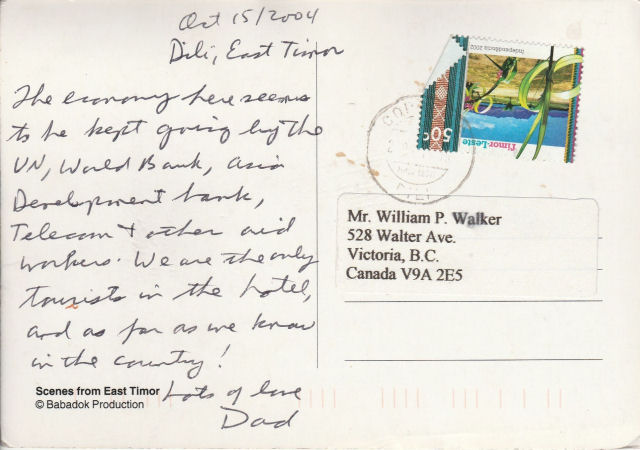 Oct 15/2004
Dili, East Timor
The economy here seems
to be kept going by the
UN, World Bank, Asia
Development bank,
Telecom + other aid
workers. We are the only
tourists in the hotel,
and as far as we know
in the country!
Lots of love
Dad
Scenes from East Timor
© Babadok Production
Independência 2002
50c
Timor-Leste
DILI
Mr. William P. Walker
528 Walter Ave.
Victoria, B.C.
Canada V9A 2E5